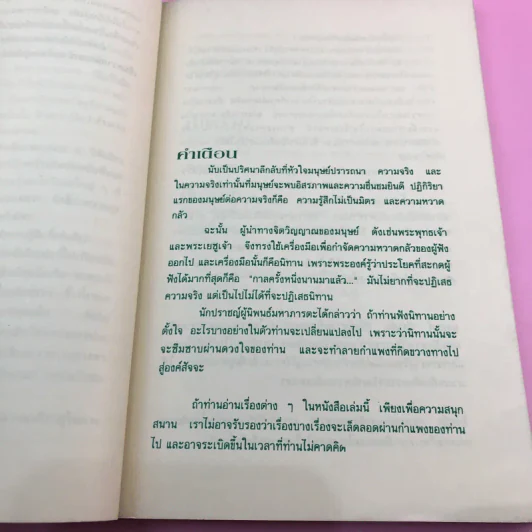 คำเตือน
นับเป็นปริศนาลึกลับที่หัวใจมนุษย์ปรารถนา ความจริง และ
ในความจริงเท่านั้นที่มนุษย์จะพบอิสรภาพและความชื่นชมยินดี ปฏิกิริยา
แรกของมนุษย์ต่อความจริงก็คือ ความรู้สึกไม่เป็นมิตร และความหวาด
กลัว
ฉะนั้น ผู้นำทางจิตวิญญาณของมนุษย์ ดังเช่นพระพุทธเจ้า
และพระเยซูเจ้า จึงทรงใช้เครื่องมือเพื่อกำจัดความหวาดกลัวของผู้ฟัง
ออกไป และเครื่องมือนั้นก็คือนิทาน เพราะพระองค์รู้ว่าประโยคที่สะกดผู้
ฟังได้มากที่สุดก็คือ "กาลครั้งหนึ่งนานมาแล้ว..." มันไม่ยากที่จะปฏิเสธ
ความจริง แต่เป็นไปไม่ได้ที่จะปฏิเสธนิทาน
นักปราชญ์ผู้นิพนธ์มหาภารตะได้กล่าวว่า ถ้าท่านฟังนิทานอย่าง
ตั้งใจ อะไรบางอย่างในตัวท่านจะเปลี่ยนแปลงไป เพราะว่านิทานนั้นจะ
จะซึมซาบผ่านดวงใจของท่าน และจะทำลายกำแพงที่กีดขวางทางไป
สู่องค์สัจจะ
ถ้าท่านอ่านเรื่องต่าง ๆ ในหนังสือเล่มนี้ เพียงเพื่อความสนุก
สนาน เราไม่อาจรับรองว่าเรื่องบางเรื่องจะเล็ดลอดผ่านกำแพงของท่าน
ไป และอาจระเบิดขึ้นในเวลาที่ท่านไม่คาดคิด